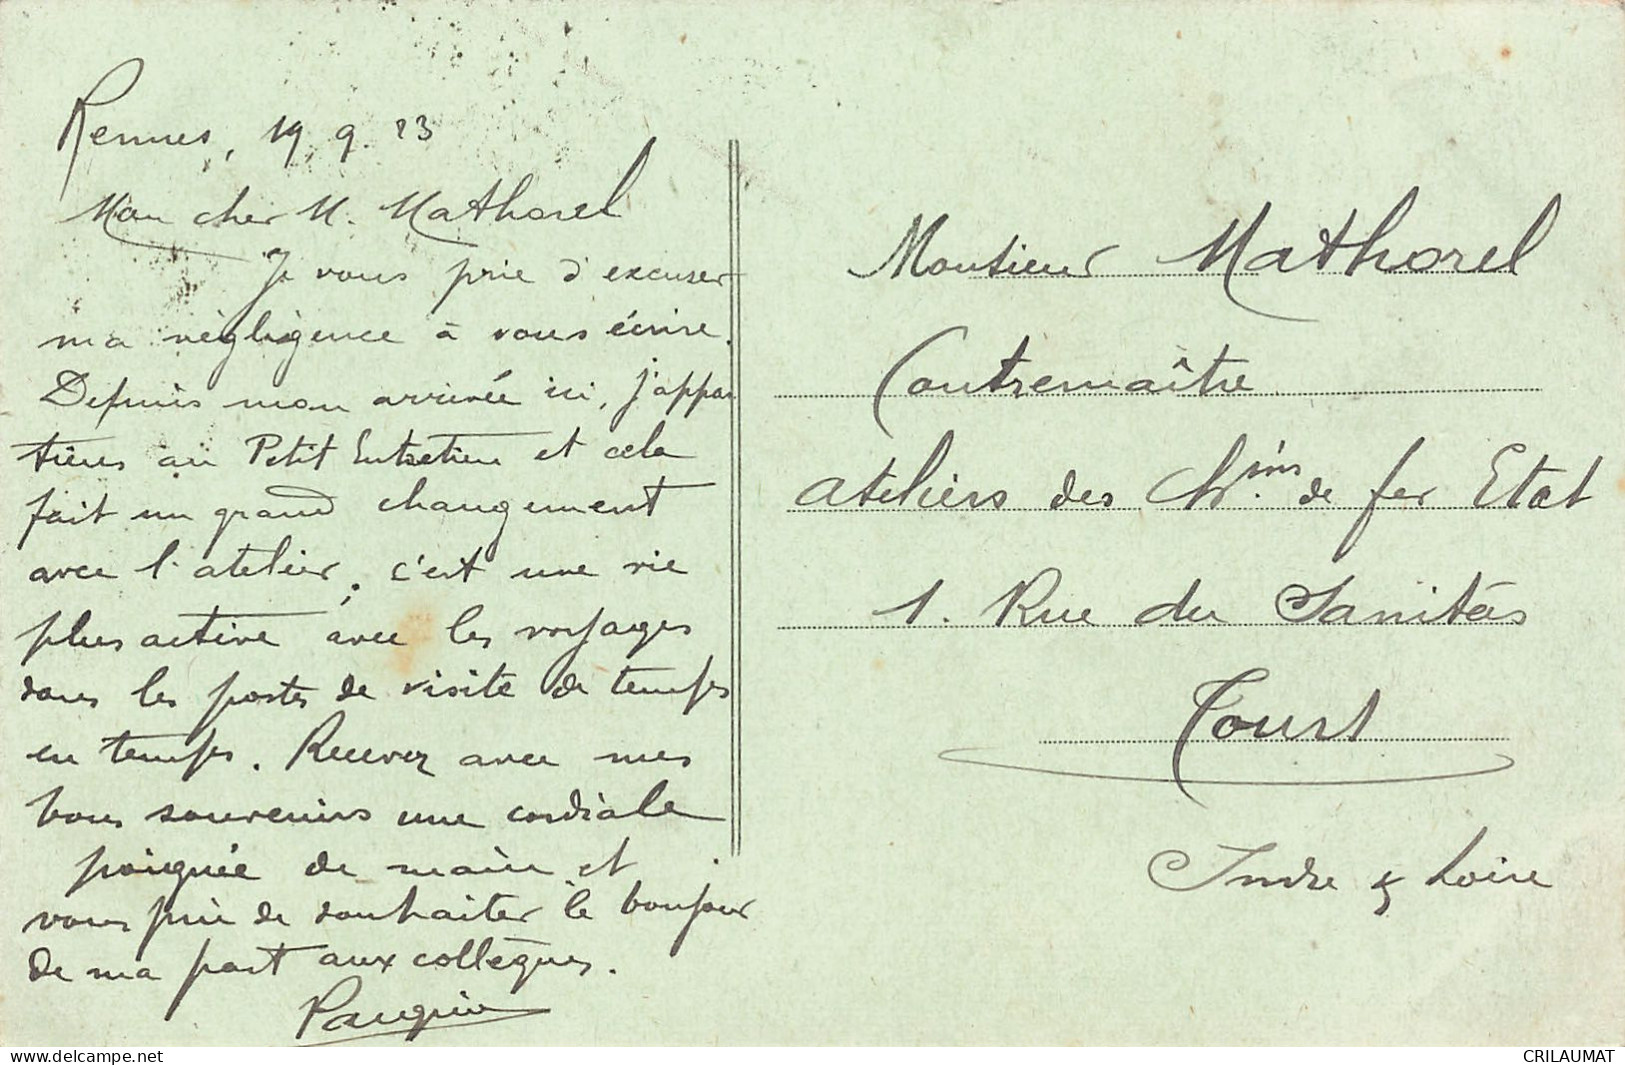 Rennes, 19. 9. 23
Mon cher M. Mathorel
Je vous prie d'excuser
ma négligence à vous écrire.
Depuis mon arrivée ici, j'appar
tiens au Petit Entretien et cela
fait un grand changement
avec l'atelier, c'est une vie
plus active avec les voyages
dans les postes de visite de temps
en temps. Recevez avec mes
bons souvenirs une cordiale
poignée de main et
vous prie de souhaiter le bonjour
de ma part aux collègues.
Monsieur Mathorel
Contremaître
Ateliers des Ch.ins de fer Etat
1. Rue du Sanitas
Tours
Indre & Loire
CRILAUMAT
delcampe.net